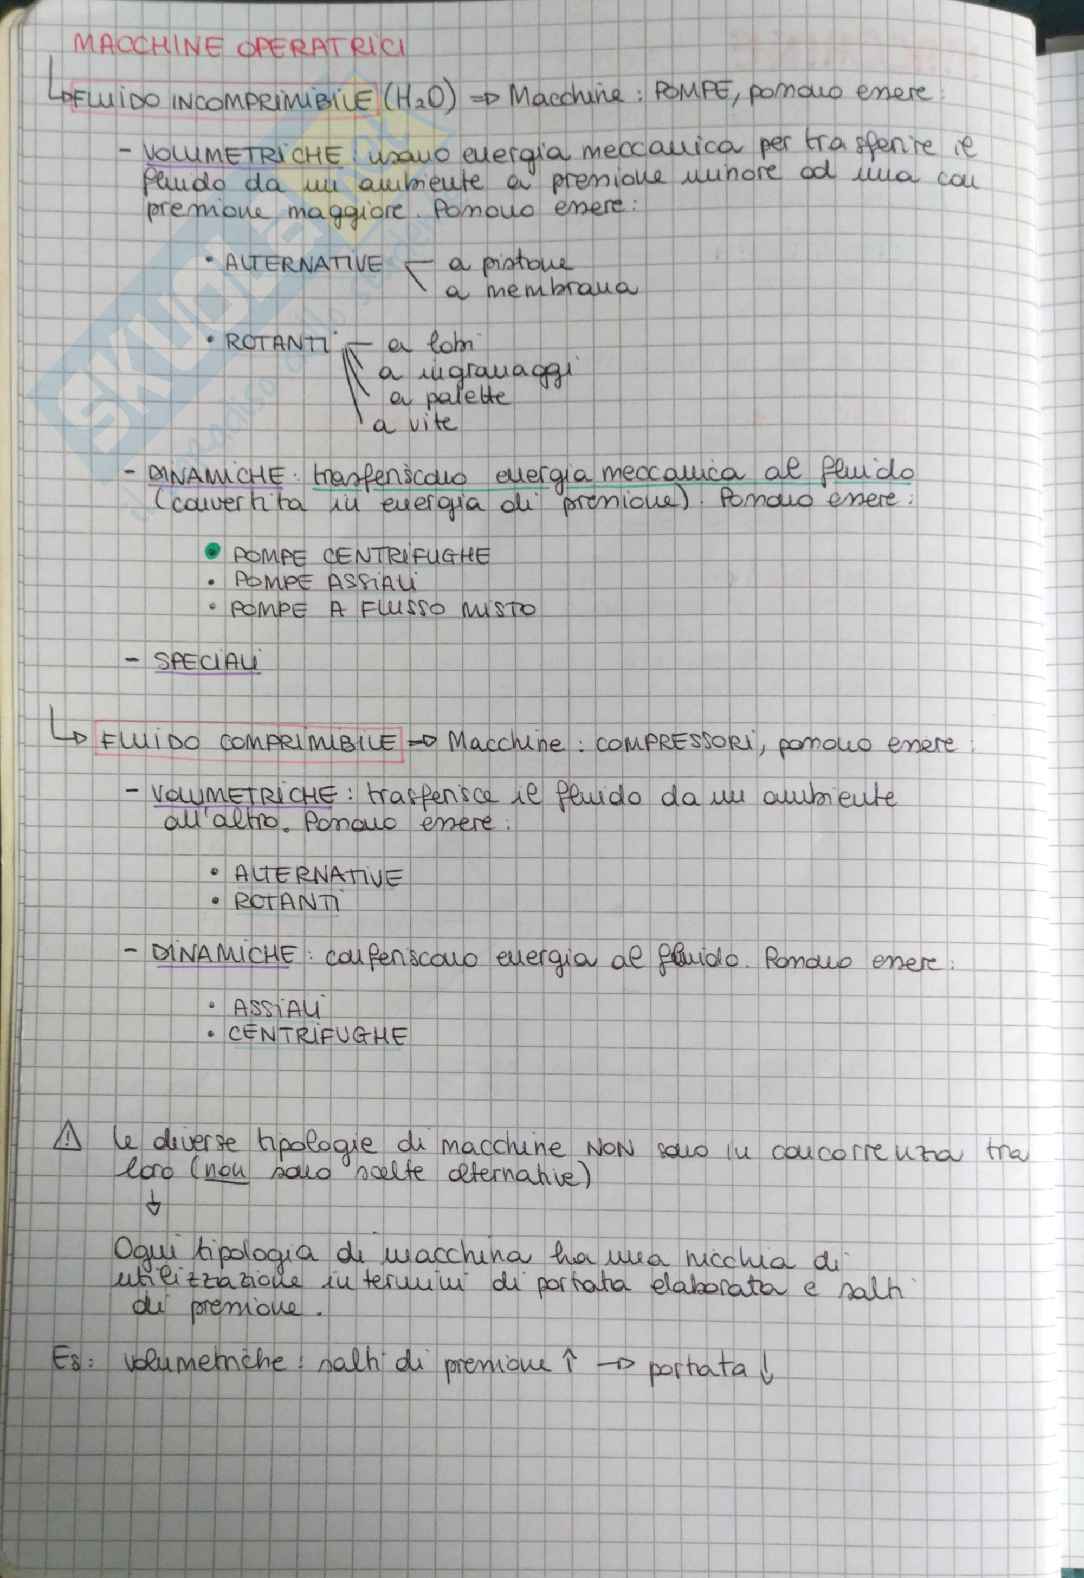 MACCHINE OPERATRICI
FLUIDO INCOMPRIMIBILE (H2O) => Macchine: POMPE, possono essere:
- VOLUMETRICHE: usano energia meccanica per trasferire il
fluido da un ambiente a pressione minore ad una con
pressione maggiore. Possono essere:
• ALTERNATIVE - a pistone
a membrana
• ROTANTI - a lobi
a ingranaggi
a palette
a vite
- DINAMICHE: trasferiscono energia meccanica al fluido
(convertita in energia di pressione). Possono essere:
• POMPE CENTRIFUGHE
• POMPE ASSIALI
• POMPE A FLUSSO MISTO
- SPECIALI
FLUIDO COMPRIMIBILE => Macchine: COMPRESSORI, possono essere:
- VOLUMETRICHE: trasferisce il fluido da un ambiente
all'altro. Possono essere:
• ALTERNATIVE
• ROTANTI
- DINAMICHE: conferiscono energia al fluido. Possono essere:
• ASSIALI
• CENTRIFUGHE
⚠ le diverse tipologie di macchine NON sono in concorrenza tra
loro (non sono scelte alternative)
↓
Ogni tipologia di macchina ha una nicchia di
utilizzazione in termini di portata elaborata e salti
di pressione.
Es: volumetriche: salti di pressione ↑ → portata ↓
SKUOLA